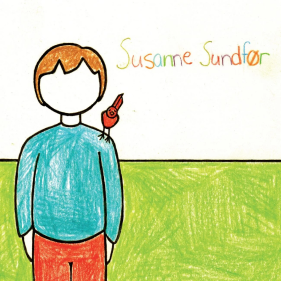 Susanne Sundfør